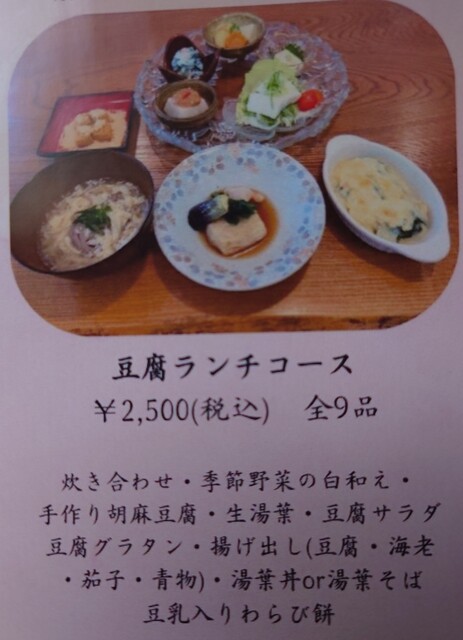 豆腐ランチコース
￥2,500(税込) 全9品
炊き合わせ・季節野菜の白和え・
手作り胡麻豆腐・生湯葉・豆腐サラダ
豆腐グラタン・揚げ出し(豆腐・海老
・茄子・青物)・湯葉丼or湯葉そば
豆乳入りわらび餅